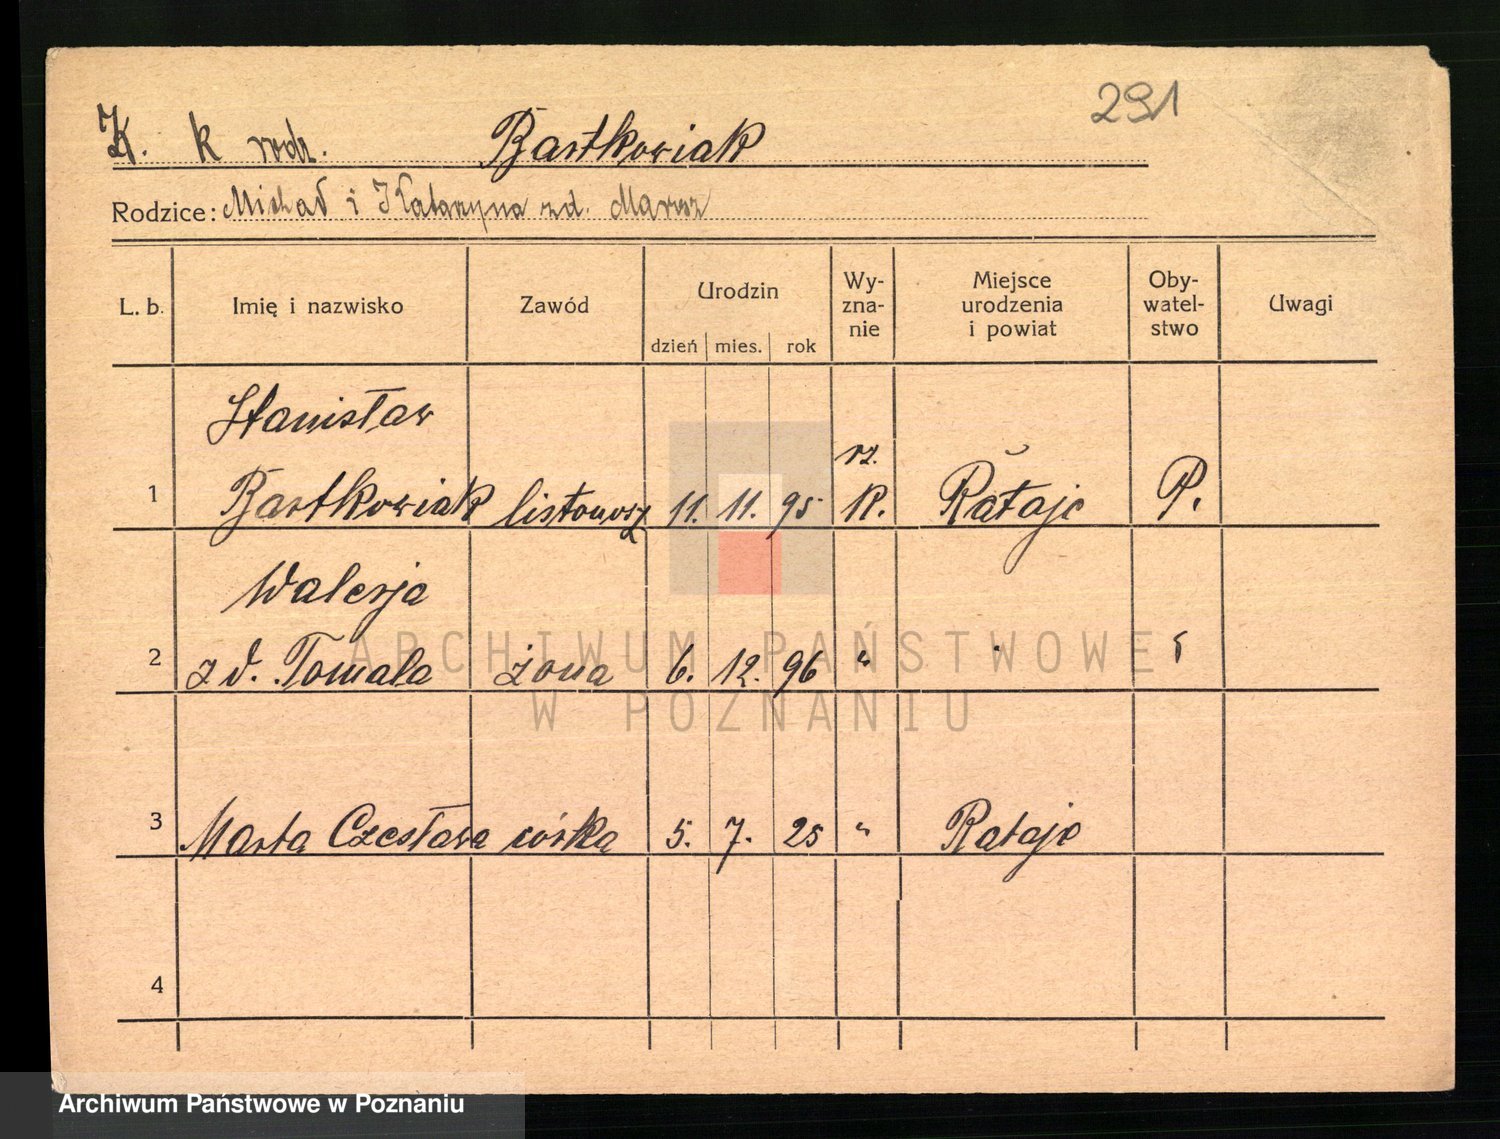 291
K. k rodz. Bartkowiak
Rodzice: Michał i Katarzyna zd.
L. b. Imię i nazwisko Zawód Urodzin dzień mies. rok Wy-zna-nie Miejsce urodzenia i powiat Oby-watel-stwo Uwagi
Stanisław rz.
1 Bartkowiak listonosz 11. 11. 95 K. Rataje P.
Walerja
2 zd. Tomala żona 6. 12. 96 "
3 Marta Czesława córka 5. 7. 25 " Rataje
4
ARCHIWUM PAŃSTWOWE
W POZNANIU
Archiwum Państwowe w Poznaniu